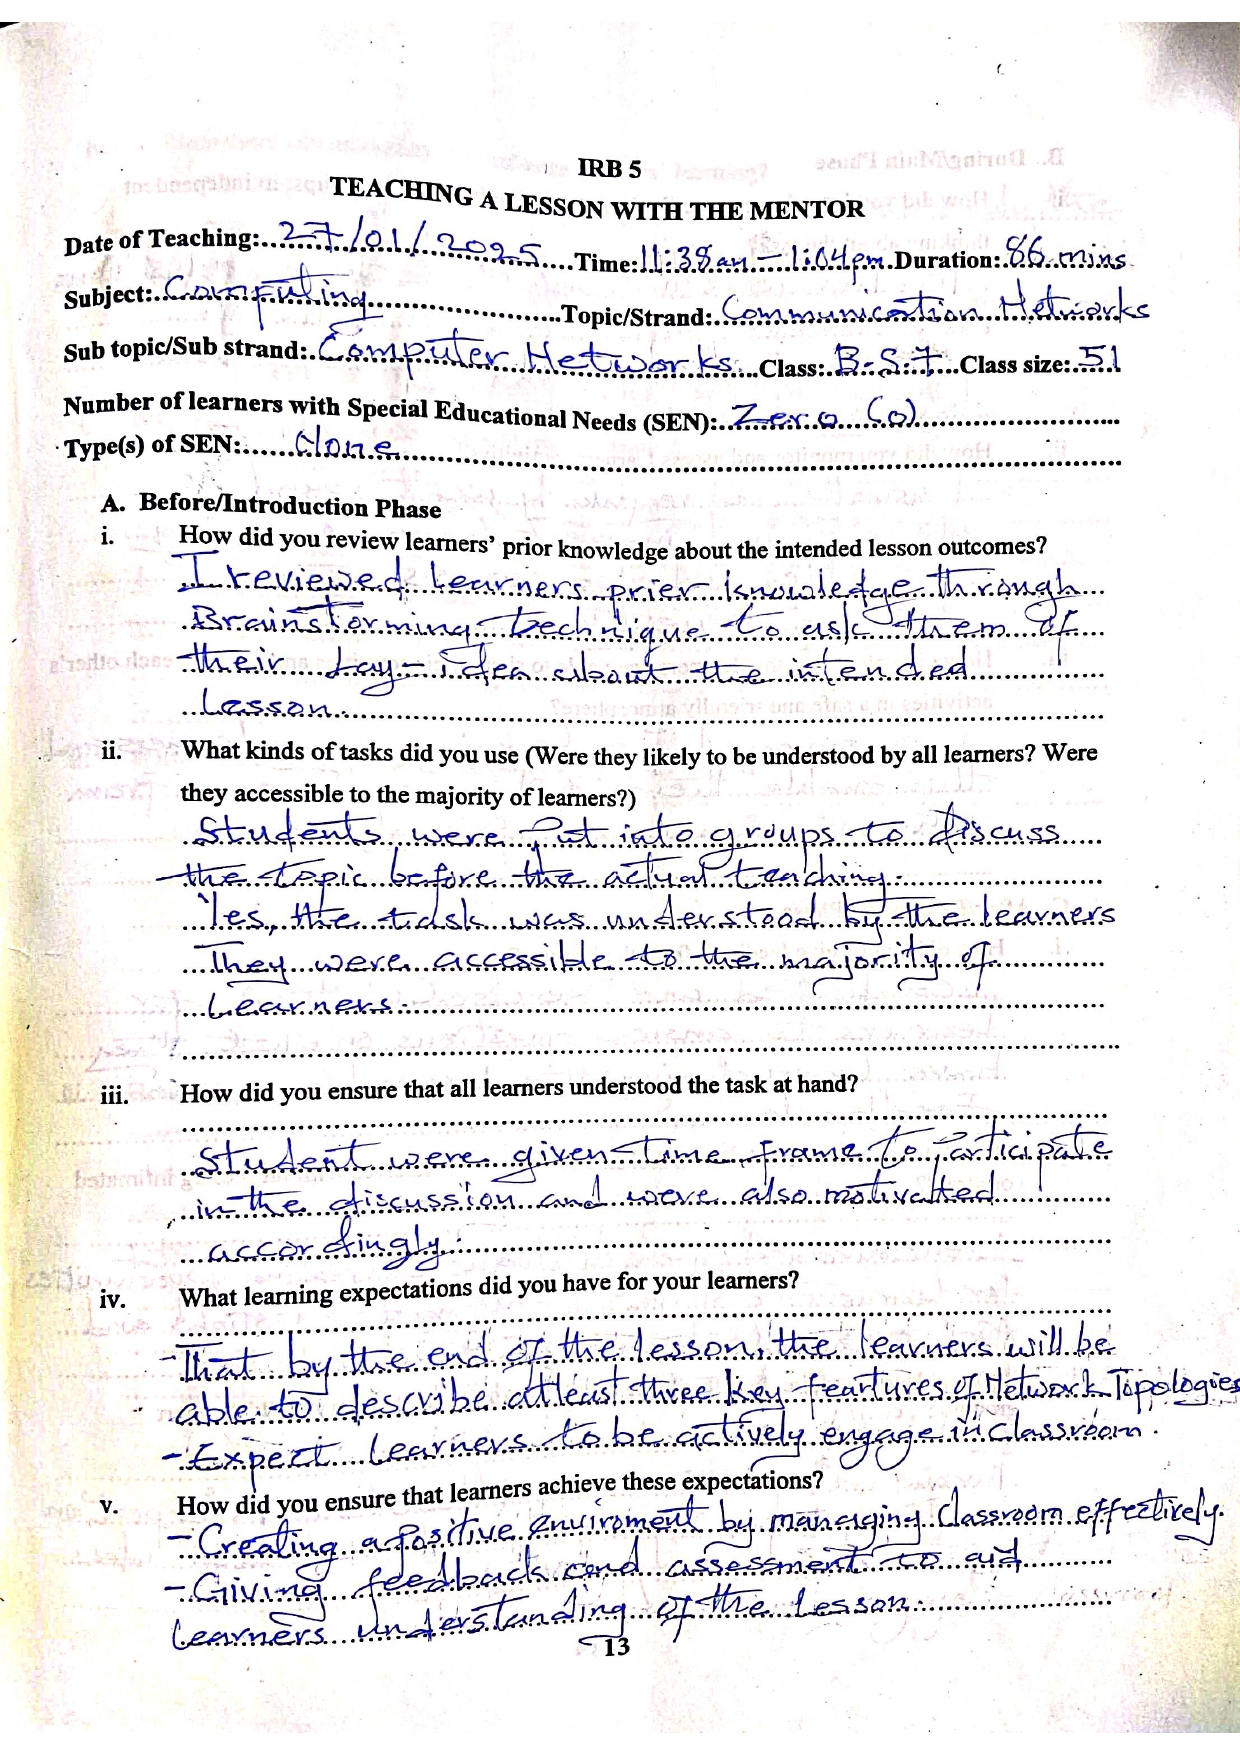 IRB 5
TEACHING A LESSON WITH THE MENTOR
Date of Teaching:..27/01/2025....Time:11:38am – 1:04pm.Duration:.86 mins.
Subject:.Computing.......Topic/Strand:.Communication Networks
Sub topic/Sub strand:.Computer Networks...Class:.B.S.7...Class size:.51
Number of learners with Special Educational Needs (SEN):..Zero (0)......
Type(s) of SEN:.....None......
A. Before/Introduction Phase
i. How did you review learners' prior knowledge about the intended lesson outcomes?
I reviewed learners prier knowledge through
Brainstorming technique to ask them of
their Lay-idea about the intended
Lesson.
ii. What kinds of tasks did you use (Were they likely to be understood by all learners? Were
they accessible to the majority of learners?)
Students were put into groups to discuss
the topic before the actual teaching.
Yes, the task was understood by the learners
They were accessible to the majority of
Learners.
iii. How did you ensure that all learners understood the task at hand?
Student were given time frame to participate
in the discussion and were also motivatted
accordingly.
iv. What learning expectations did you have for your learners?
-That by the end of the lesson, the learners will be
able to describe atleast three key feartures of Network Topologies
-Expect learners to be actively engage in classroom.
v. How did you ensure that learners achieve these expectations?
-Creating a positive enviroment by managing classroom effectively.
-Giving feedback and assessment to aid
learners understanding of the lesson.
13